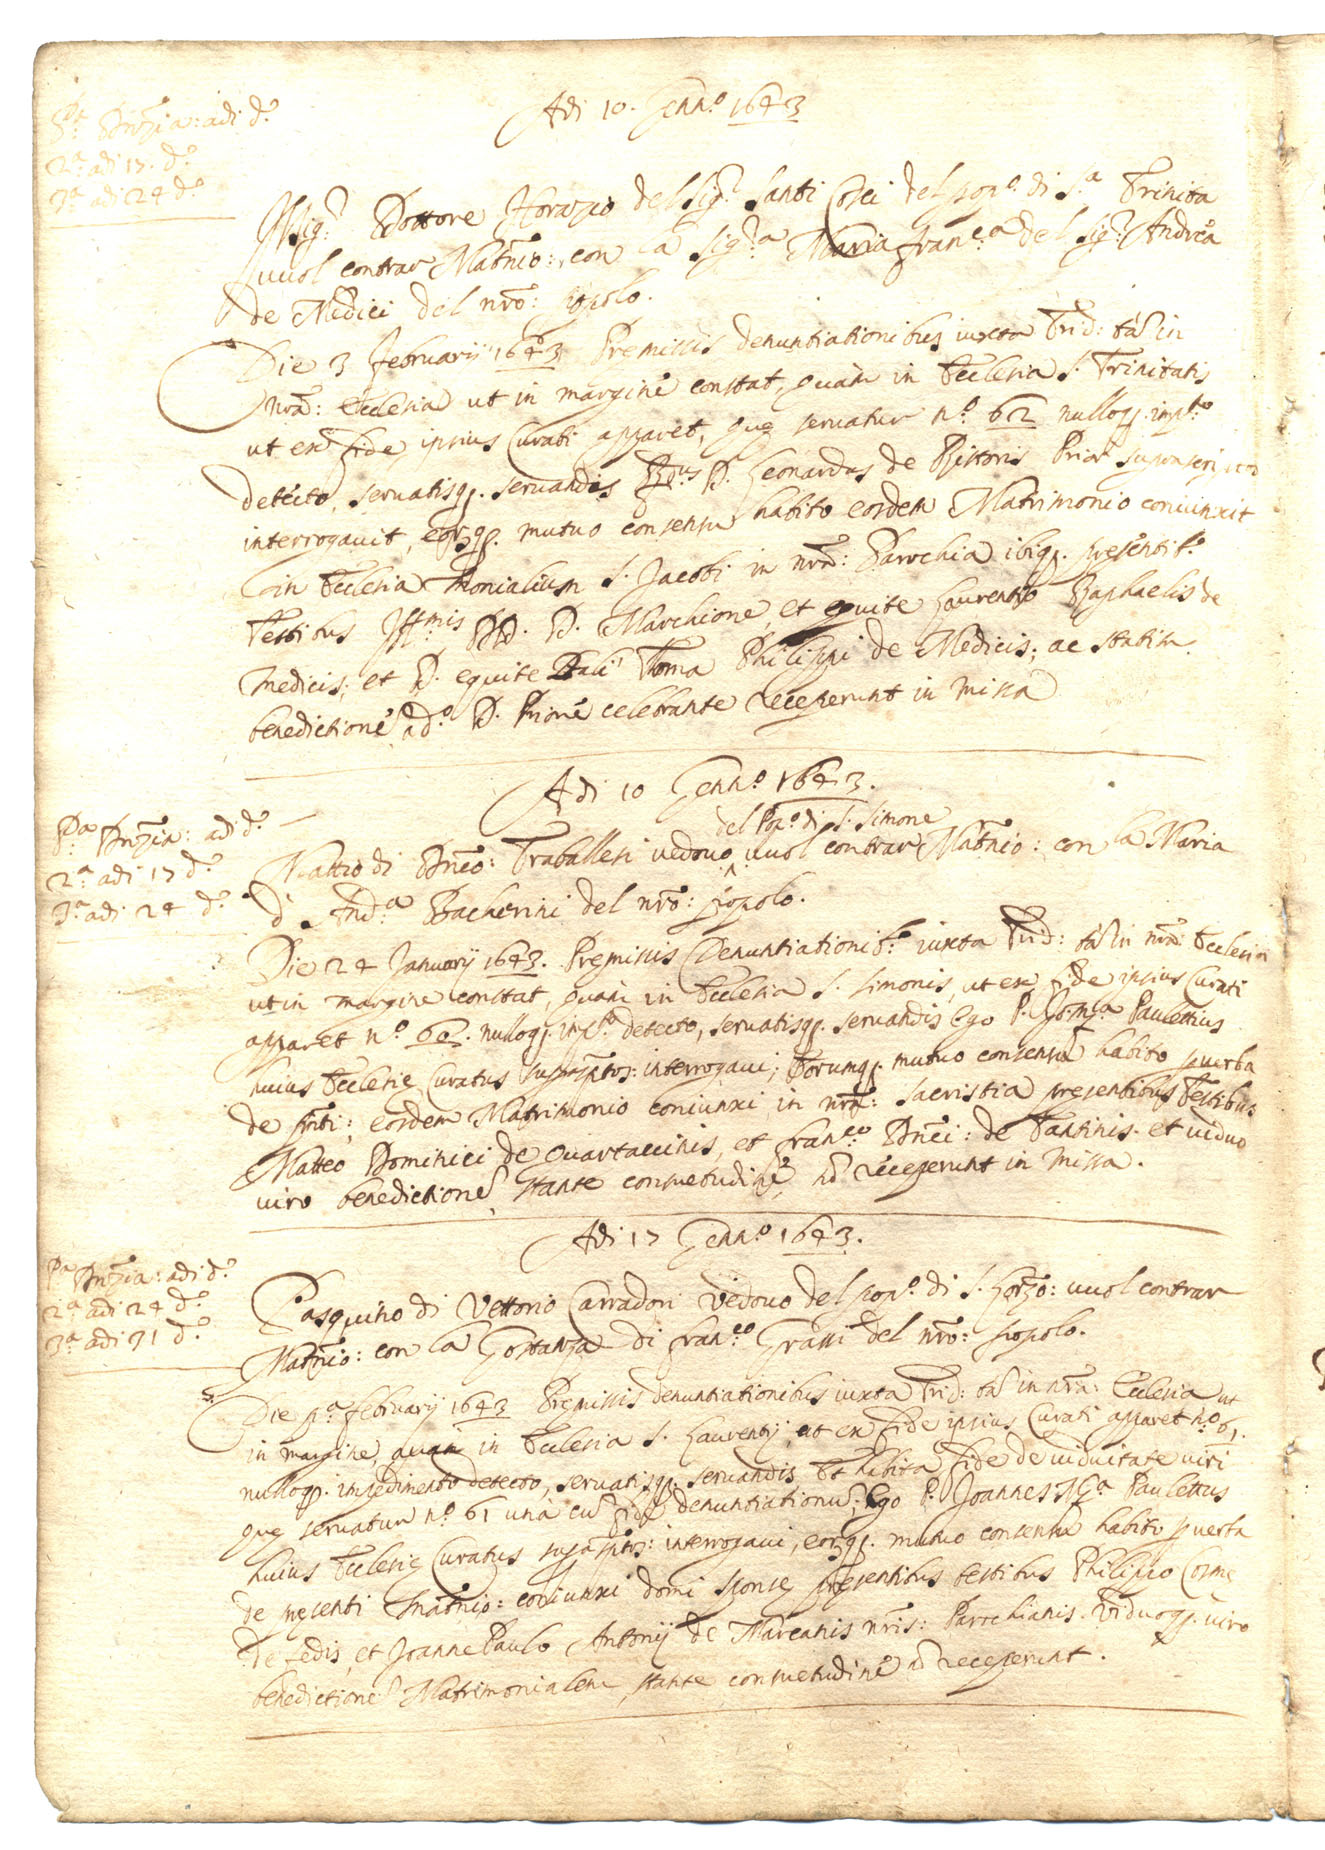 Adi 10. Genn.º 1643
P.ª Dn̄zia: adi d.º
2.ª adi 17. d.º
3.ª adi 24 d.º
Il Sig.r Dottore Horazio del Sig.r Santi Cosci del pop.º di S.ª Trinita
vuol contrar Matn̄io: con la Sig.ra Maria fran.ca del Sig.r Andrea
de Medici del nr̄o: popolo.
Die 3 februarii 1643 Premissis denuntiationibus iuxta Trid: tā in
nr̄a: Ecclesia ut in margine constat, quam in Ecclesia S. Trinitatis
ut ex fide ipsius Curati apparet, que servatur n.º 62 nulloq. imp.to
detecto, servatisq. servandis R.dus D. Leonardus de Pistoris Prior suprascriptos
interrogavit, eorq. mutuo consensu habito eosdem Matrimonio coniunxit
in Ecclesia Monialium S. Jacobi in nr̄a: Parochia ibiq. presentib.º
Testibus Ill.mis DD. D. Marchione, et equite Laurentio Raphaelis de
Medicis; et D. equite Thoma Philippi de Medicis; ac statim
benedictionē a d.º D. Priorē celebrante receperunt in missa
Adi 10 Genn.º 1643.
P.ª Dn̄zia: adi d.º
2.ª adi 17 d.º
3.ª adi 24 d.º
del Pop.º di S. Simone
Matteo di Dn̄co: Traballesi vedovo vuol contrar Matn̄io: con la Maria
d' And.ª Bacherini del nr̄o: popolo.
Die 24 Januarij 1643. Premissis Denuntiationib.º iuxta Trid: tā in nr̄a: Ecclesia
ut in margine constat, quam in Ecclesia S. Simonis, ut ex fide ipsius Curati
apparet n.º 60. nulloq. imp.º detecto, servatisq. servandis Ego P. Jo: M.ª Paulettius
huius Ecclesie Curatus suprasptos: interrogavi; Eorumq. mutuo consensu habito p verba
de pn̄ti; eosdem Matrimonio coniunxi in nr̄a: sacristia presentibus Testibus
Matteo Dominici de Quartaccinis, et fran.co Dn̄ci: de Fantinis. et viduo
viro benedictionē stante consuetudinē nō receperunt in missa.
Adi 17 Genn.º 1643.
P.ª Dn̄zia: adi d.º
2.ª adi 24 d.º
3.ª adi 31 d.º
Pasquino di Vettorio Carradori Vedovo del pop.º di S. Lorzo: vuol contrar
Matn̄io: con la Gostanza di fran.co Grassi del nr̄o: popolo.
Die p.ª februarij 1643 Premissis denuntiationibus iuxta Trid: tā in nr̄a: Ecclesia ut
in margine, quam in Ecclesia S. Laurentij, ut ex fide ipsius Curati apparet n.º 61.
nulloq. impedimento detecto, servatisq. servandis Et habita fide de viduitate viri
que servatur n.º 61 unā cū fide denuntiationū; Ego P. Joannes M.ª Paulettius
huius Ecclesie Curatus suprasptos: interrogavi, eorq. mutuo consensu habito p verba
de presenti Matn̄io: coniunxi domi sponse presentibus testibus Philippo Cosme
de Ledis, et Joanne Paulo Antonij de Marcanis nr̄is: Parochianis. Viduoq. viro
benedictionē Matrimonialem stante consuetudinē nō receperunt.